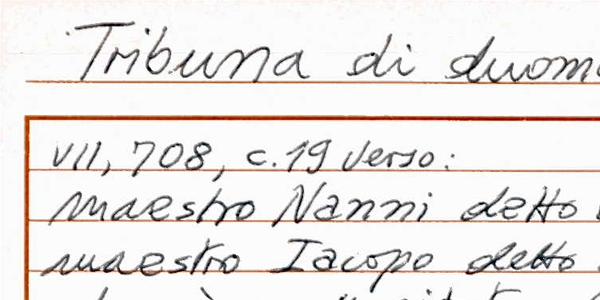 Tribuna di duomo
VII, 708, c.19 verso:
maestro Nanni detto
maestro Iacopo detto